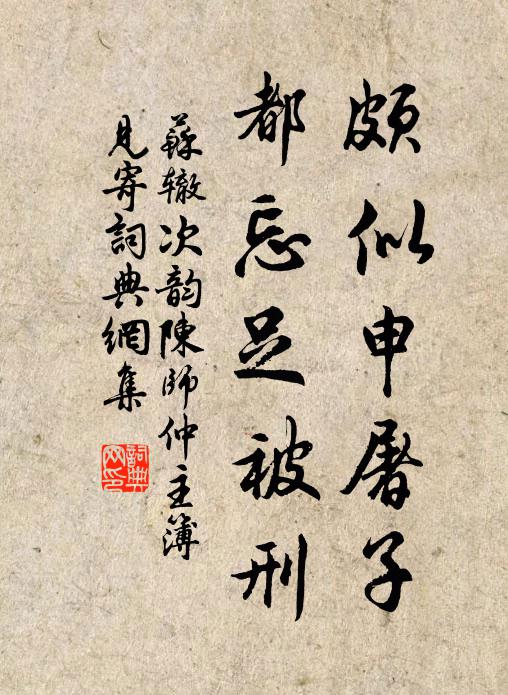 頗似申屠子
都忘足被刑
蘇辙次韵陳師仲主簿
見寄詞典網集
詞典
网印